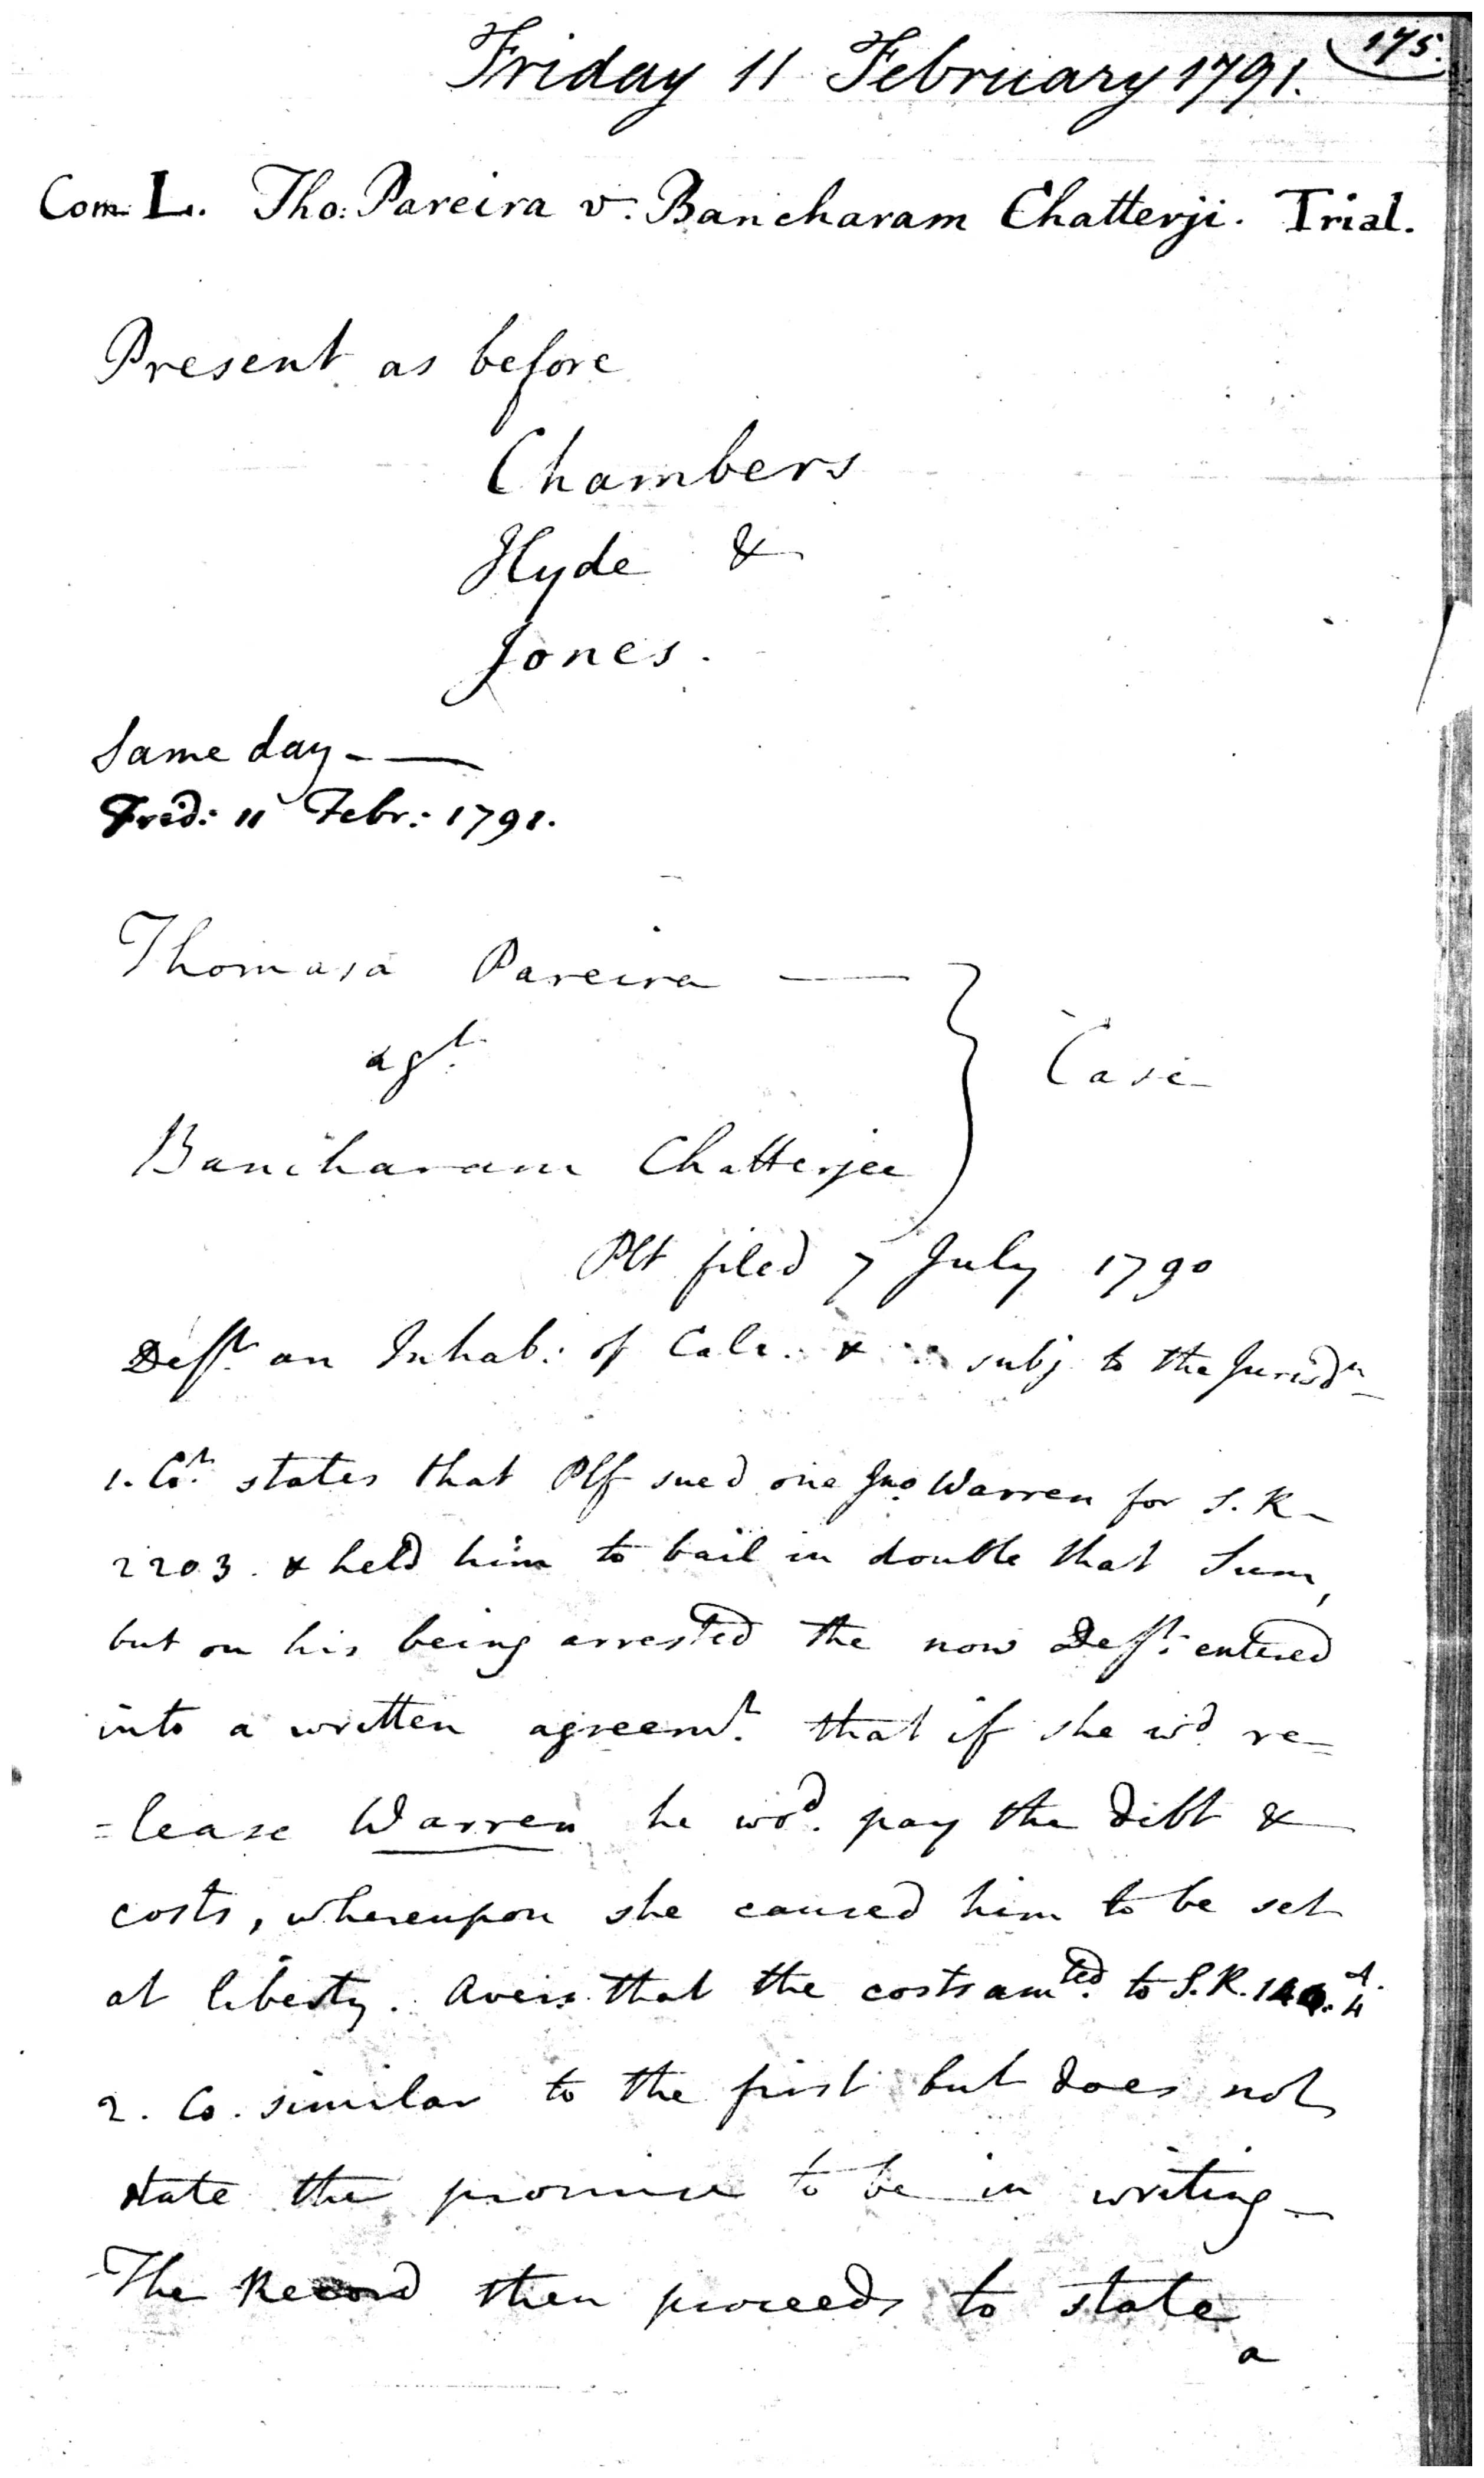 175.
Friday 11 February 1791.
Com. L. Tho: Pareira v. Bancharam Chatterji. Trial.
Present as before
Chambers
Hyde &
Jones.
Same day - —
Frid: 11 Febr: 1791.
Thomasa Pareira —
agt.
Case
Bancharam Chatterjee
Plt filed 7 July 1790
Defft. an Inhab: of Calc. & subj. to the Jurisdn
1. Cot. states that Plf sued one Jno Warren for S. R -
2203. & held him to bail in double that Sum,
but on his being arrested the now Defft. entered
into a written agreemt. that if she wd re=
=lease Warren he wod. pay the debt &
costs, whereupon she caused him to be set
at liberty. Avers that the costs amted. to S.R.
2. Co. similar to the first but does not
state the promise to be in writing -
The Record then proceeds to state
a